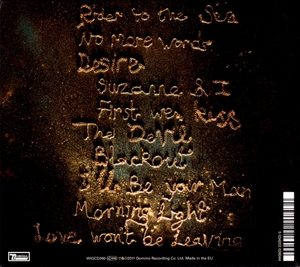 Rider to the Sea
No more words
Desire
Suzanne & I
First we kiss
The Devil
Blackout
I'll Be your Man
Morning Light
Love won't be Leaving
WIGCD260 ℗&©2011 Domino Recording Co. Ltd. Made in the EU